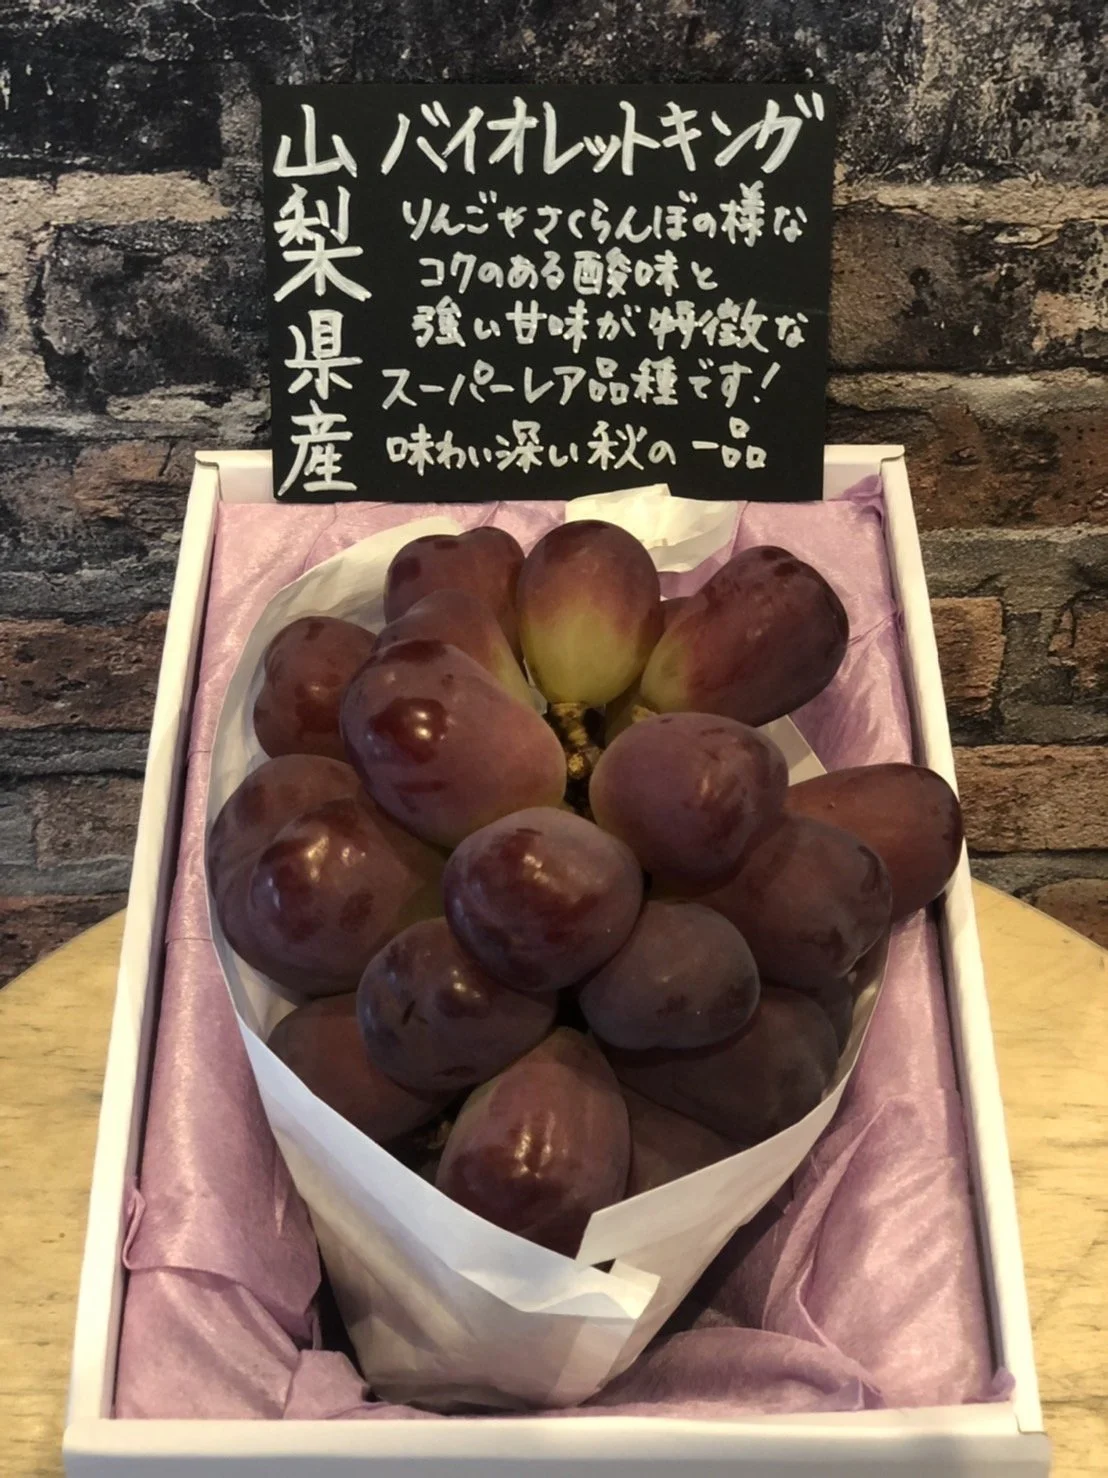 山梨県産
バイオレットキング
りんごやさくらんぼの様な
コクのある酸味と
強い甘味が特徴な
スーパーレア品種です!
味わい深い秋の一品